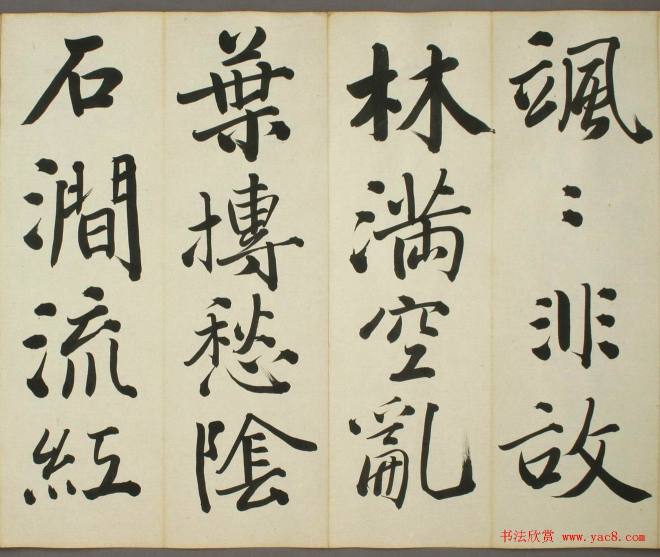 颯〻非故
林满空亂
葉摶愁陰
石澗流紅
书法欣赏 www.yac8.com